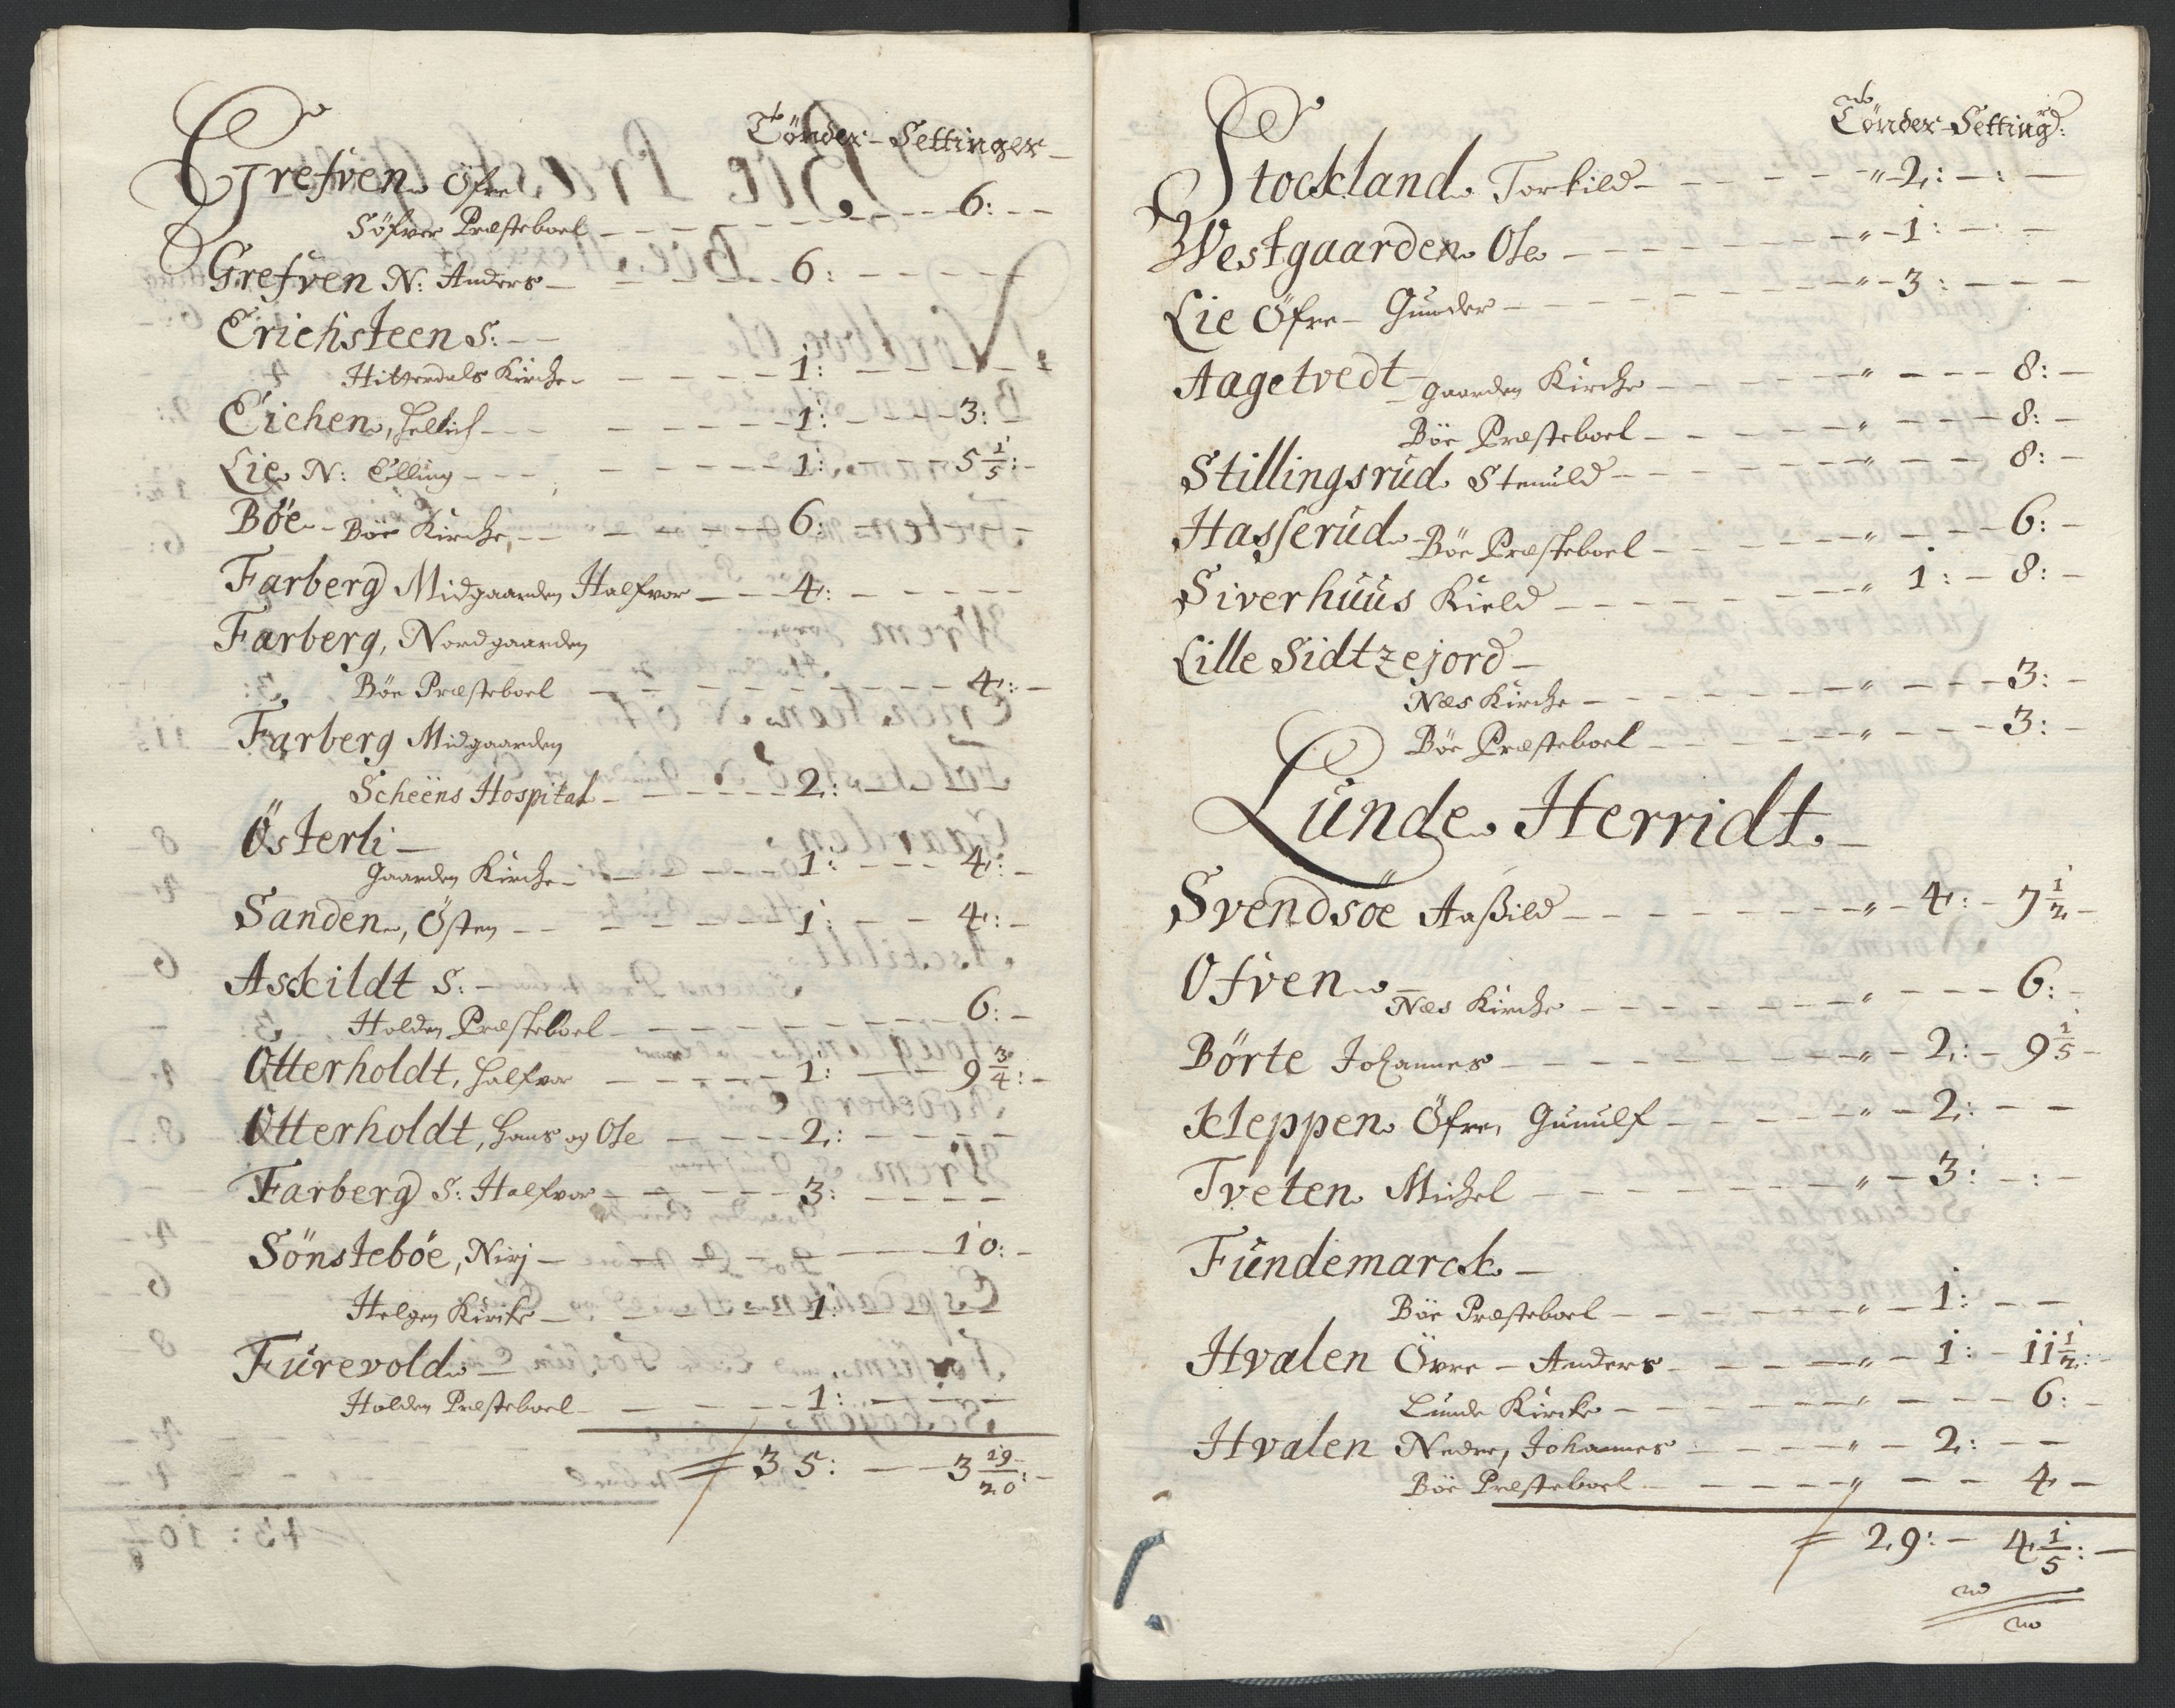 Tönder - Settinger
Grefven Öfre
Söfver Præsteboel - - - 6: - -
Grefven N: Anders - - - 6: - - -
Erichsteen S: - -
Hitterdals Kirche - - - 1: - - -
Eichen, Hellich - - - 1: - - 3: -
Lie N: Elling - - - 1: - - 5 1/5: -
Böe - Böe Kirche, - - - 6: - - -
Farberg Midgaarden Halfvor - - - 4: - - -
Farberg, Nordgaarden
Böe Præsteboel - - - 4: -
Farberg Midgaarden
Scheens Hospital - - - 2: - - -
Österli -
Gaarden Kirche - - - 1: - - 4: -
Sanden, Östen - - - 1: - - 4: -
Askildt S: -
Holden Præsteboel - - - 6: -
Otterholdt, Halfvor - - - 1: - 9 3/4: -
Otterholdt, Hans og Ole - - - 2: - - -
Farberg S: Halfvor - - - 3: - - -
Sönsteböe, Nirj - - - 10: -
Helgen Kircke - - - 1: - - -
Furevold -
Holden Præsteboel - - - 1: - - -
35: - - 3 19/20: -
Tönder - Setting
Stockland Torkild - - - " - 2: - : -
Westgaarden Ole - - - " - 1: - : -
Lie Öfre - Gunder - - - " - 3: - - -
Aagetvedt - Gaarden Kirche - - - " - - - 8: -
Böe Præsteboel - - - " - - - 8: -
Stillingsrud Stenuld - - - " - - - 8: -
Hasserud - Böe Præsteboel - - - " - - - 6: -
Siverhuus Kield - - - " 1: - 8: -
Lille Sidtzejord -
Næs Kirche - - - " - - - 3: -
Böe Præsteboel - - - " - - - 3: -
Lunde Herridt. -
Svendsöe Aaßild - - - " - 4: - 7 1/2 -
Ofven - Næs Kirche - - - " - - - 6: -
Börte Johannes - - - " - 2: - 9 1/5 -
Kleppen Öfre, Gunulf - - - " - 2: - -
Tveten Michel - - - " - 3: - : -
Fundemarck -
Böe Præsteboel - - - " - 1: - -
Hvalen Övre - Anders - - - " - 1: - 11 1/2: -
Lunde Kircke - - - " - - - 6: -
Hvalen Nedre, Johannes - - - " - 2: - -
Böe Præsteboel - - - " - - - 4 -
29: - 4 1/5: -